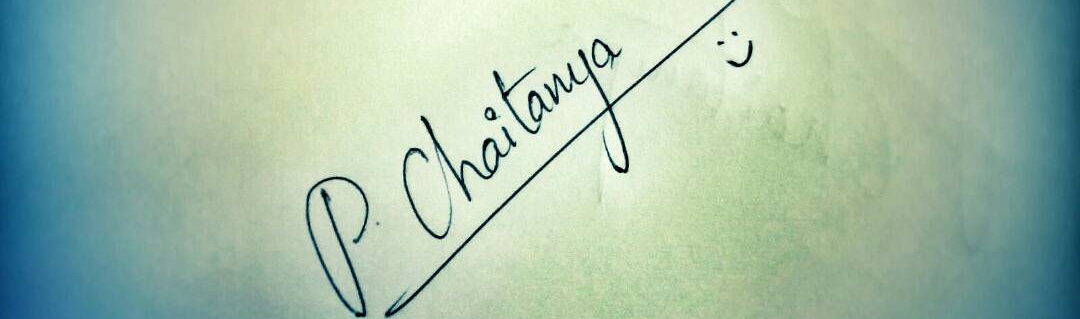 P. Chaitanya